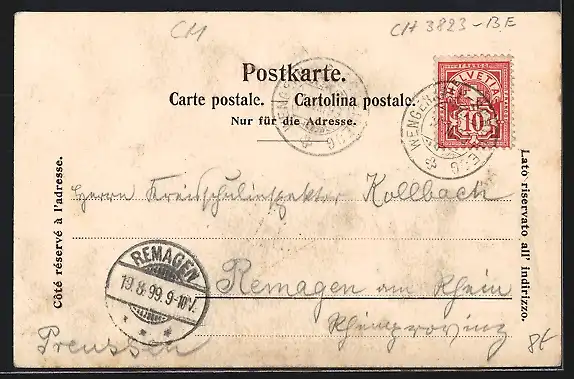 CH
CH 3823-BE
Postkarte.
Carte postale. Cartolina postale.
Nur für die Adresse.
HELVETIA
FRANCO
10
WENGEN
Côté réservé à l'adresse.
Lato riservato all' indirizzo.
Herrn Kreisschulinspektor Kollbach
REMAGEN
19.8.99.9-10V.
* * *
Remagen am Rhein
Rheinprovinz
Preussen
8t